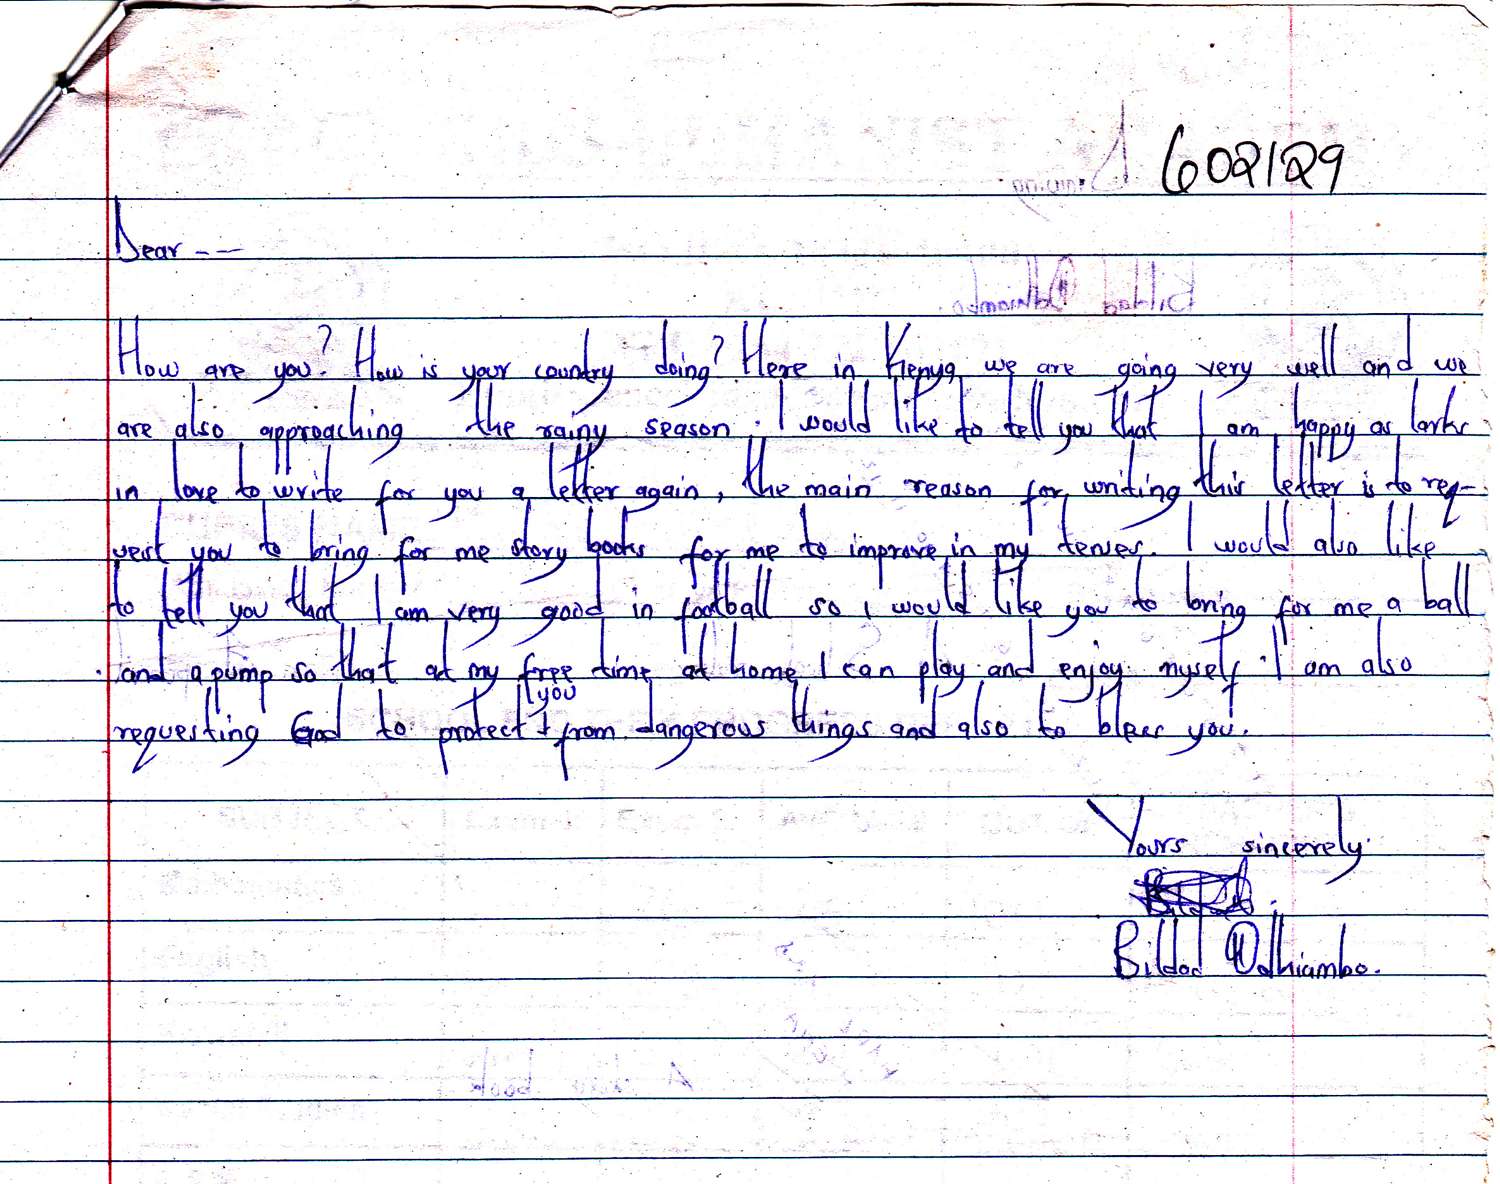 602129
Dear - -
How are you? How is your country doing? Here in Kenya we are going very well and we
are also approaching the rainy season. I would like to tell you that I am happy as larks
in love to write for you a letter again, the main reason for writing this letter is to req-
uest you to bring for me story books for me to improve in my tenses. I would also like
to tell you that I am very good in football so I would like you to bring for me a ball
and a pump so that at my free time at home I can play and enjoy myself. I am also
requesting God to protect you from dangerous things and also to bless you.
Yours sincerely.
Bildad Odhiambo.